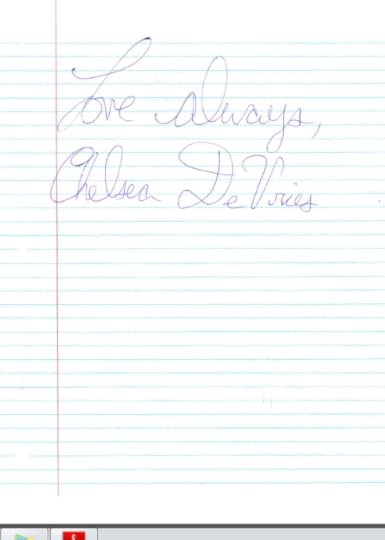 Love Always,
Chelsea DeVries